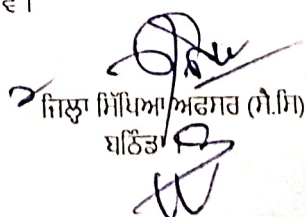 ਵ।
ਜਿਲ੍ਹਾ ਸਿੱਖਿਆ ਅਫਸਰ (ਸੈ.ਸਿ)
ਬਠਿੰਡਾ